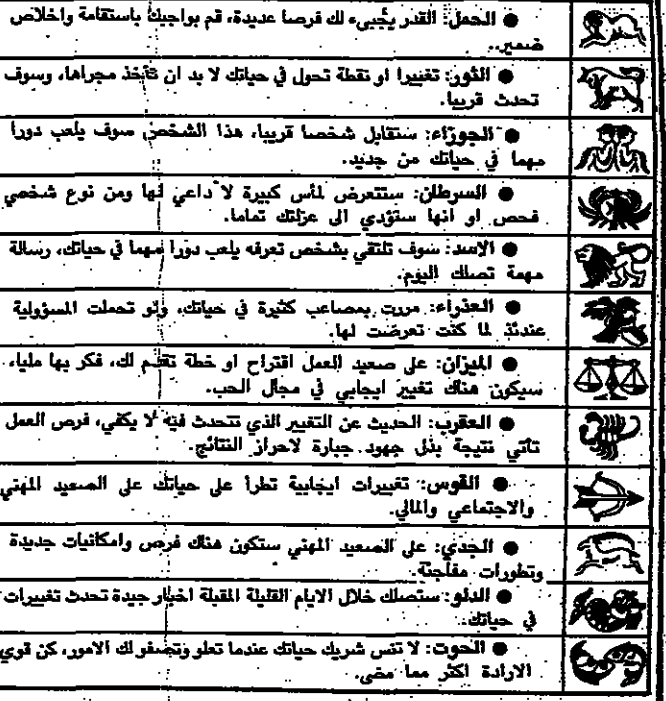 ● الحمل: القدر يجيء لك فرصا عديدة، قم بواجبك باستقامة واخلاص
ضمير..
● الثور: تغييرا او نقطة تحول في حياتك لا بد ان تأخذ مجراها، وسوف
تحدث قريبا.
● الجوزاء: ستقابل شخصا قريبا، هذا الشخص سوف يلعب دورا
مهما في حياتك من جديد.
● السرطان: ستتعرض لمأس كبيرة لا داعي لها ومن نوع شخصي
فحص او انها ستؤدي الى عزلتك تماما.
● الاسد: سوف تلتقي بشخص تعرفه يلعب دورا مهما في حياتك، رسالة
مهمة تصلك اليوم.
● العذراء: مررت بمصاعب كثيرة في حياتك، ولو تحملت المسؤولية
عندئذ لما كنت تعرضت لها.
● الميزان: على صعيد العمل اقتراح او خطة تقدم لك، فكر بها مليا،
سيكون هناك تغيير ايجابي في مجال الحب.
● العقرب: الحديث عن التغيير الذي تتحدث فيه لا يكفي، فرص العمل
تأتي نتيجة بذل جهود جبارة لاحراز النتائج.
● القوس: تغييرات ايجابية تطرأ على حياتك على الصعيد المهني
والاجتماعي والمالي.
● الجدي: على الصعيد المهني ستكون هناك فرص وامكانيات جديدة
وتطورات مفاجئة.
● الدلو: ستصلك خلال الايام القليلة المقبلة اخبار جيدة تحدث تغييرات
في حياتك.
● الحوت: لا تنس شريك حياتك عندما تعلو وتصفو لك الامور، كن قوي
الارادة اكثر مما مضى.